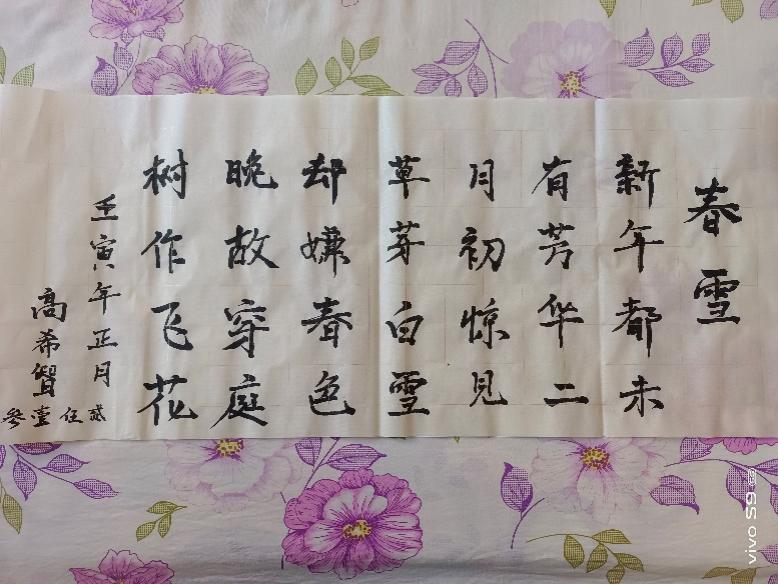 春雪
新年都未
有芳华二
月初惊见
草芽白雪
却嫌春色
晚故穿庭
树作飞花
壬寅年正月
高希贤
贰伍壹叁
vivo S9